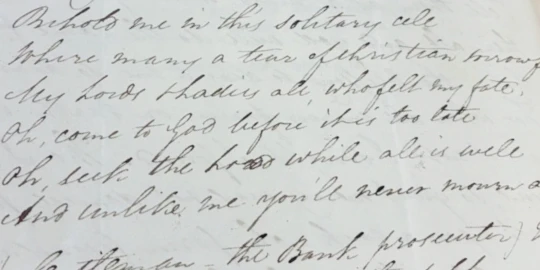 Behold me in this solitary cele
Where many a tear of Christian sorrow
My Lords & ladies all, who felt my fate,
Oh, come to God before it is too late
Oh, seek the Lord while all is well
And unlike me you'll never mourn a
Gentleman - the Bank prosecutor)